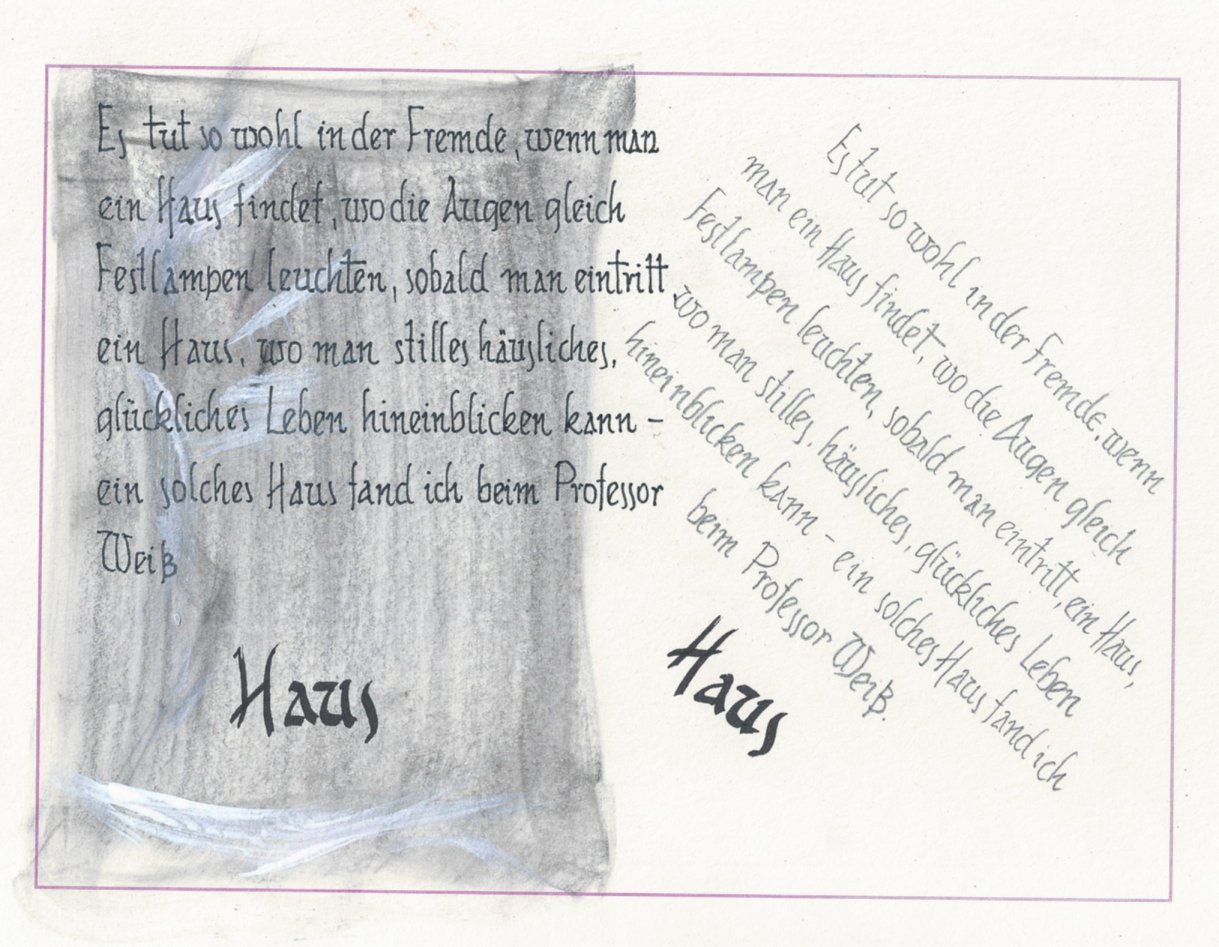 Es tut so wohl in der Fremde, wenn man
ein Haus findet, wo die Augen gleich
Festlampen leuchten, sobald man eintritt,
ein Haus, wo man stilles häusliches,
glückliches Leben hineinblicken kann –
ein solches Haus fand ich beim Professor
Weiß
Haus
Es tut so wohl in der Fremde, wenn
man ein Haus findet, wo die Augen gleich
Festlampen leuchten, sobald man eintritt, ein Haus,
wo man stilles, häusliches, glückliches Leben
hineinblicken kann – ein solches Haus fand ich
beim Professor Weiß.
Haus